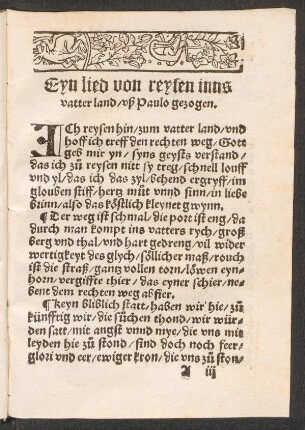 Eyn lied von reysen inns
vatter land / vß Paulo gezogen.
ICh reysen hin / zum vatter land / vnd
hoff ich treff den rechten weg / Gott
geb mir yn / syns geysts verstand /
das ich zů reysen nitt sy treg / schnell louff
vnd yl / das ich das zyl / behend ergryff / im
glouben stiff / hertz můt vnnd sinn / in liebe
Brinn / also das köstlich kleynet gwynn.
¶ Der weg ist schmal / die port ist eng / da
durch man kompt ins vatters rych / groß
berg vnd thal / vnd hart gedreng / vil wider
wertigkeyt des glych / söllicher maß / rouch
ist die straß / gantz vollen torn / löwen eyn
horn / vergiffte thier / das eyner schier / ne-
bent dem rechten weg abfier.
¶ Keyn bliblich statt / haben wir hie / zů
künfftig wir / die sůchen thond / wir wür-
den satt / mit angst vnnd mye / die vns mit
leyden hie zů stond / sind doch noch feer /
glori vnd eer / ewiger kron / die vns zů ston-
A iij